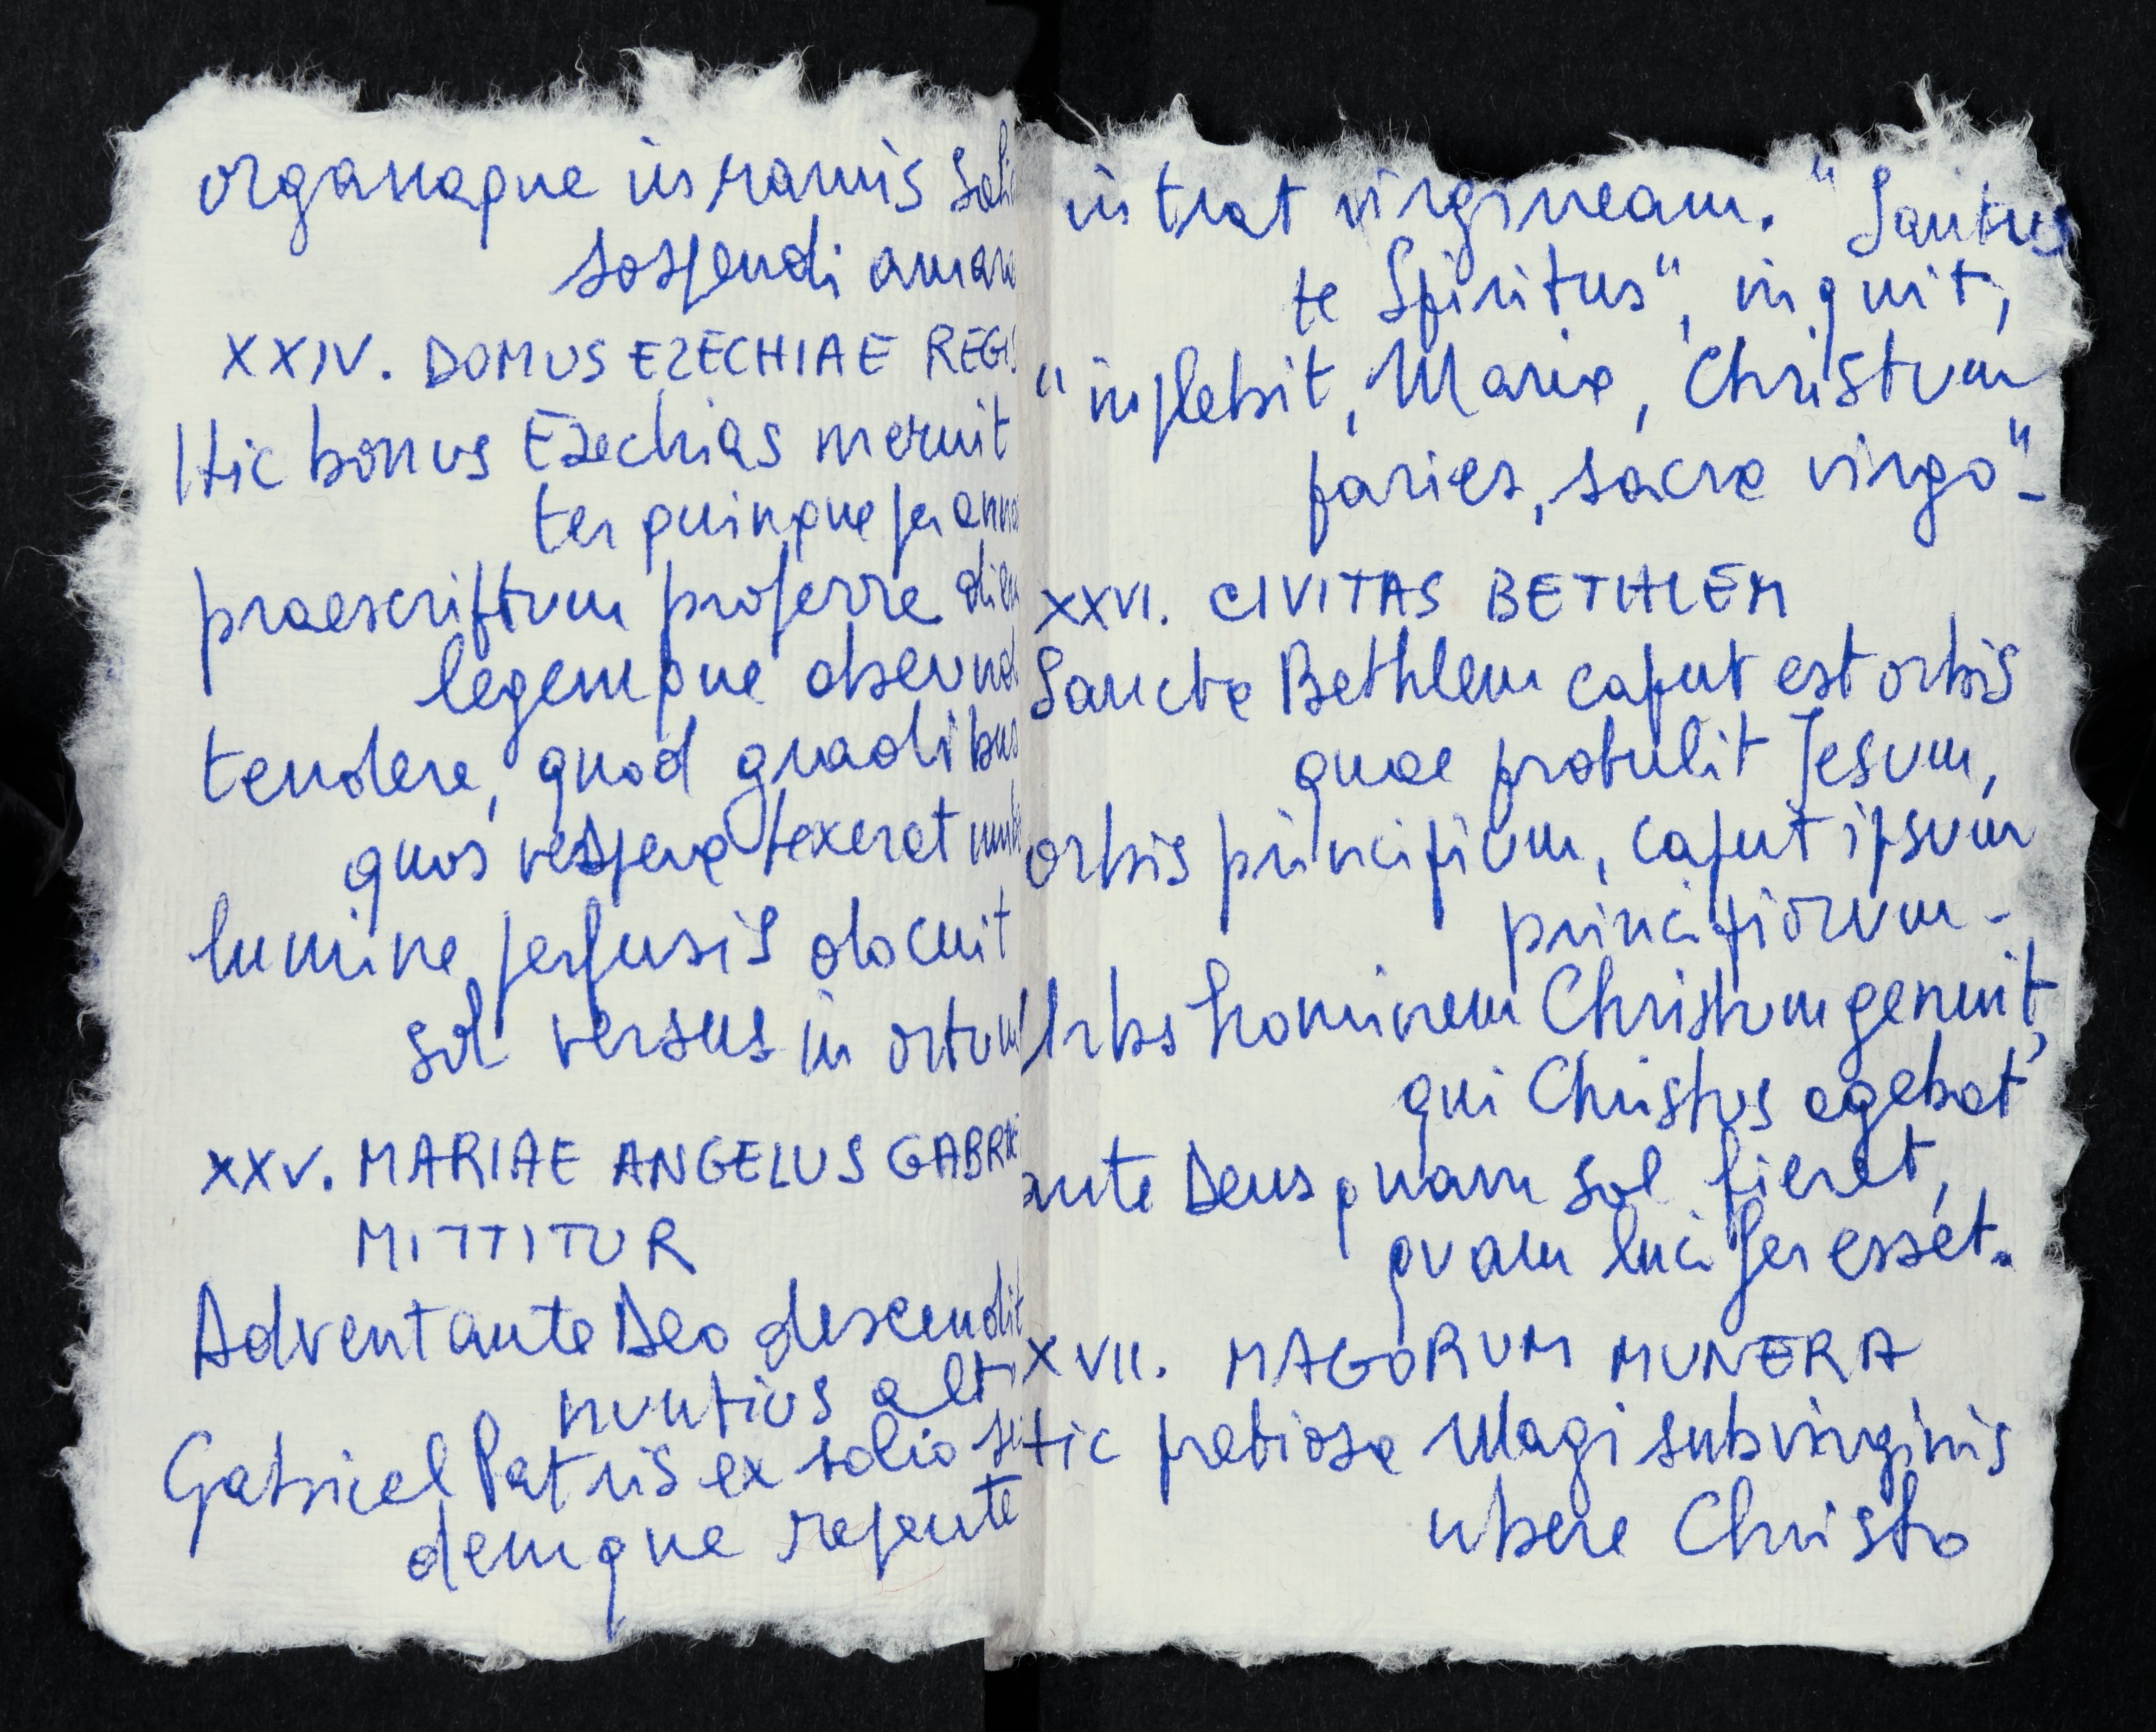 organaque in ramis Sali
sospendi amara
XXIV. DOMUS EZECHIAE REGIS
Hic bonus Ezechias meruit
ter quinque per anno
praescriptum proferre diem
legemque obeund
tendere, quod gradibus
quos vespera texerat umb
lumine perfusis docuit
sol versus in ortum
XXV. MARIAE ANGELUS GABRIE
MITTITUR
Adventante Deo descendit
nuntius alti
Gabriel Patris ex solio se
demque repente
intrat virgineam. "Santus
te Spiritus", inquit,
"inplebit, Maria, Christum
paries, sacra virgo".
XXVI. CIVITAS BETHLEM
Sancta Bethlem caput est orbis
quae protulit Jesum,
orbis principium, caput ipsum
principiorum.
Urbs hominem Christum genuit,
qui Christus agebat
ante Deus quam sol fieret,
quam lucifer esset.
XVII. MAGORUM MUNERA
Hic pretiosa Magi sub virginis
ubere Christo